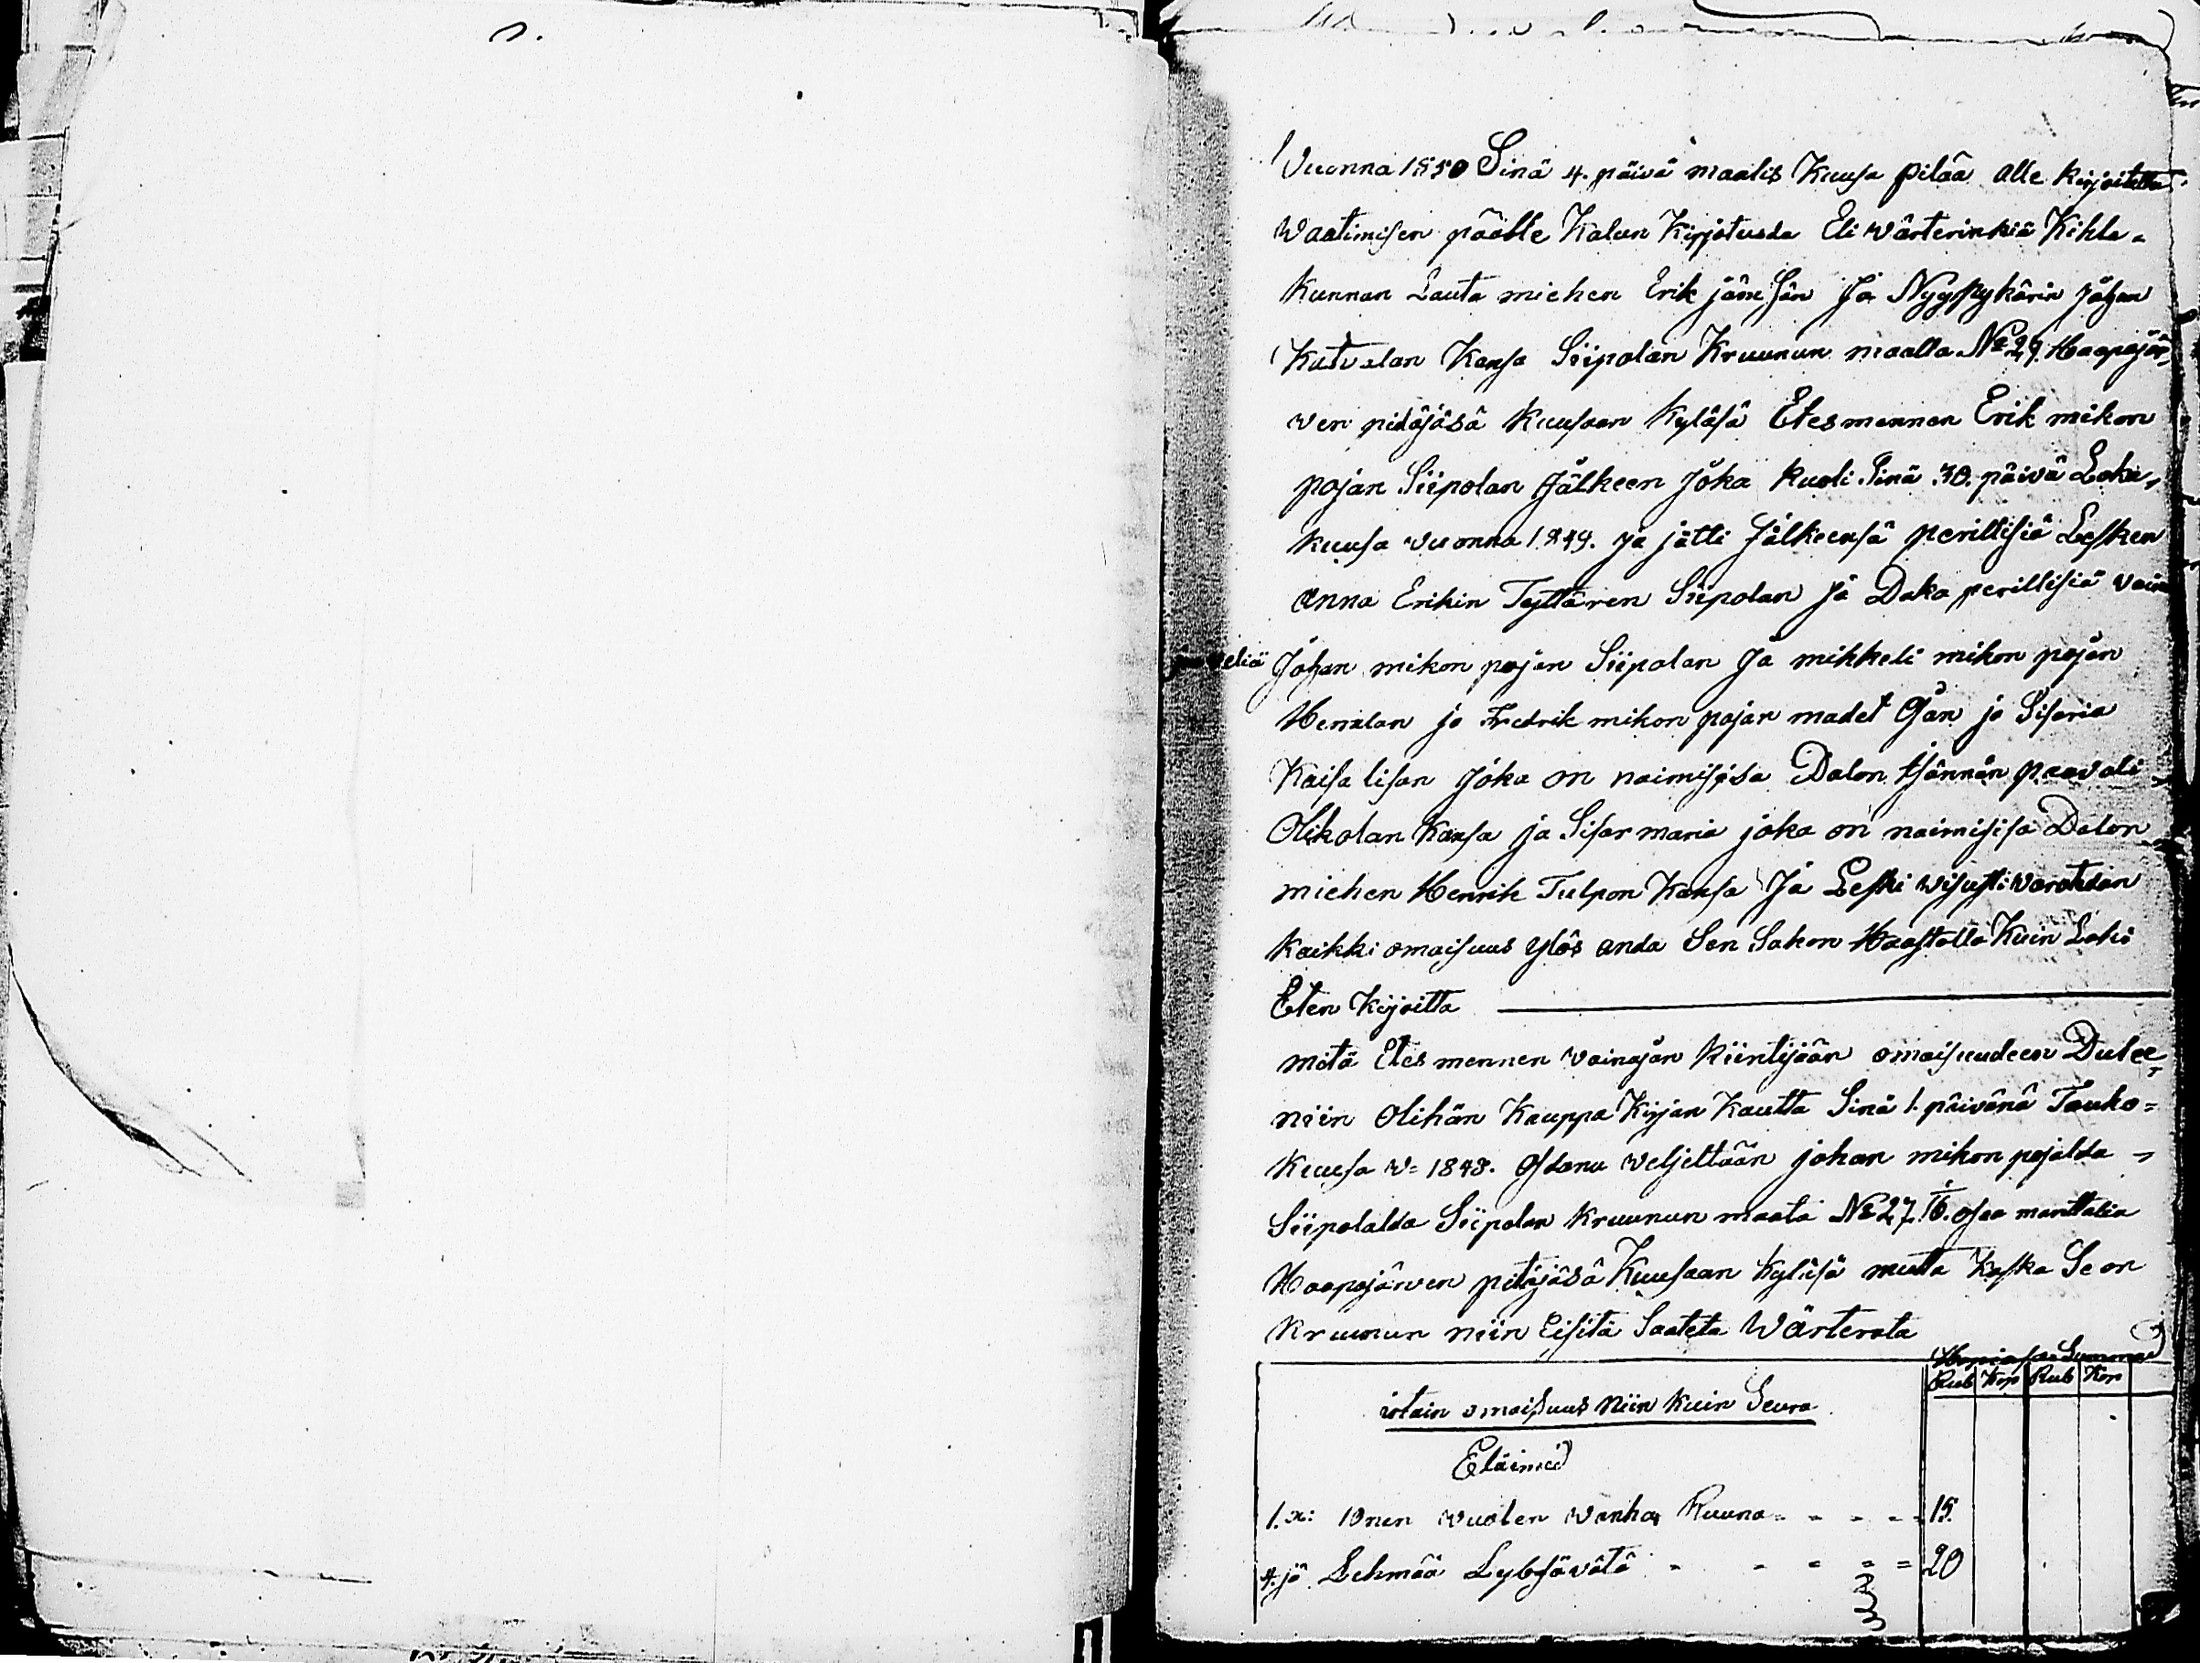 Vuonna 1850 Sinä 4. päivä maalis Kuusa pitää alle kirjoitettu
Waatimisen päälle Kalun Kirjotusda Eli wärterinkiä Kihla-
Kunnan Lauta miehen Erik jämsän Ja Nygpykärin Johan
Katvalan Kansa Siipolan Kruunun maalla No 29. Haapajär,
wen pidäjäsä Kuusaan Kyläsä Etesmennen Erik mikon
pojan Siipolan Jälkeen Joka Kuoli Sinä 30. päivä Loka,
kuusa vuonna 1849. ja jätti Jälkeensä perillisiä Lesken
anna Erikin Tyttären Siipolan Ja Daka perillisiä vain
veliä Johan mikon pojan Siipolan Ja mikkeli mikon pojan
Heralan ja Fredrik mikon pojan madet Ojan ja Sisaria
Kaisa lisan Joka on naimisisa Dalon Isännän paavali
Olikolan Kansa ja Sisar maria joka on naimisisa Dalon
miehen Henrik Tulpon Kansa Ja Leski wisusti varotetan
Kaikki omaisuus ylös anda Sen Sakon Haastolla Kuin Laki
Eten Kirjoitta
mitä Etes mennen vainajan Kiintijään omaisuudeen Dulee,
niin Olihän Kauppa Kirjan Kautta Sinä 1. päivänä Touko=
Kuusa w= 1848. Ostanu Weljeltään johan mikon pojalda
Siipolalda Siipolan Kruunun maata No 27. 1/6. osaa manttalia
Haapajärven pitäjäsä Kuusaan Kyläsä mutta Koska Se on
Kruunun niin Eisitä Saateta Wärterata
Hopiasa Summa
Rub Kop Rub Kop
irtain omaisuus Niin Kuin Seura
Eläimed
1.x: 10nen vuoten vanha Ruuna - - - - 15.
4.jä Lehmää Lybsävätä - - = = = 20